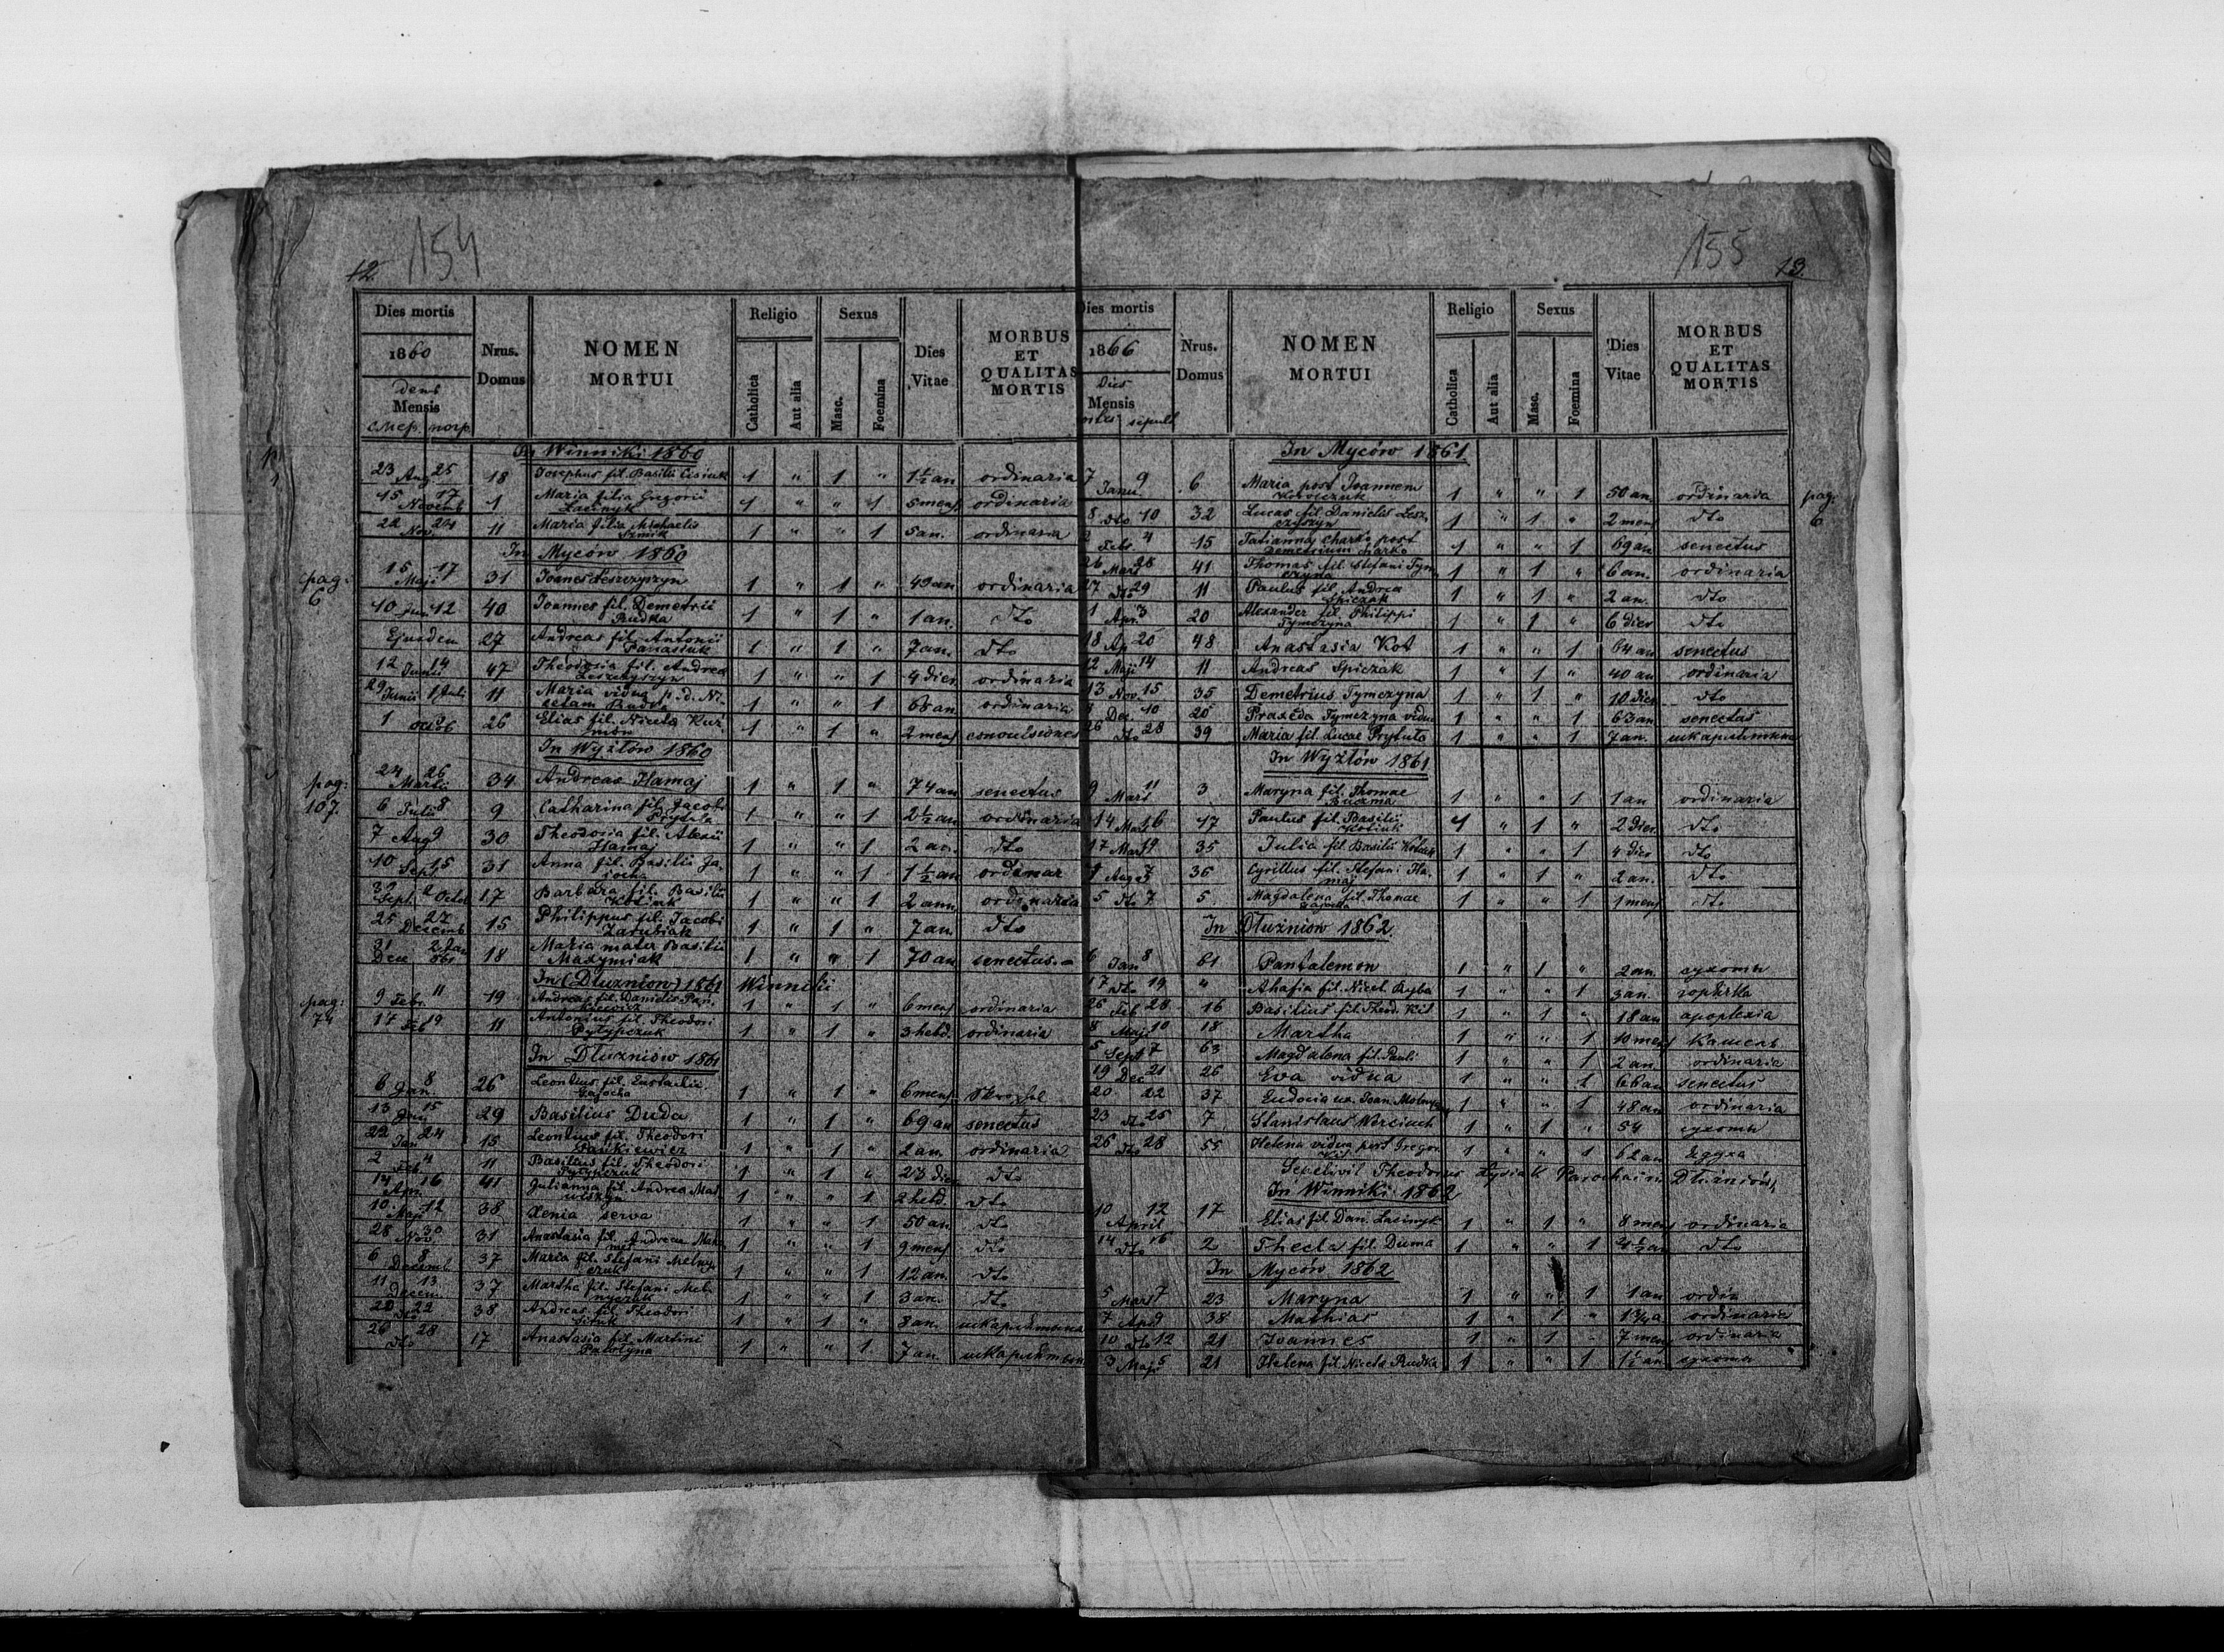 12. 154
Dies mortis
1860
день
Mensis
смер. погр.
Nrus. Domus
NOMEN MORTUI
Religio
Catholica
Aut alia
Sexus
Masc.
Foemina
Dies Vitae
MORBUS ET QUALITAS MORTIS
In Winniki 1860
23 Aug 25 18 Josephus fil. Basilii Cisiuk 1 " 1 " 1½ an ordinaria
15 Novemb 17 1 Maria filia Gregorii Lacinyk 1 " " 1 5 mens ordinaria
22 Nov. 24 11 Maria filia Michaelis Szmik 1 " " 1 5 an. ordinaria
In Myców 1860
pag: 6
15 Maji 17 31 Joanes Leszczyszyn 1 " 1 " 49 an ordinaria
10 Jun 12 40 Joannes fil. Demetrii Rudka 1 " 1 " 1 an. dto
Ejusdem 27 Andreas fil. Antonii Panasiuk 1 " 1 " 7 an. dto
12 Junii 14 47 Theodosia fil. Andrea Leszczyszyn 1 " " 1 4 dies ordinaria
29 Junii 1 Juli 11 Maria vidua p. d. Nicetam Rudka 1 " " 1 68 an ordinaria
1 26 Elias fil. Niceta 1 " 1 " 2 mens convulsiones
In Wyżłów 1860
pag: 107.
24 Martii 26 34 Andreas Hamaj 1 " 1 " 74 an senectus
6 Julii 8 9 Catharina fil. Jacobi Prytula 1 " " 1 2½ an ordinaria
7 Aug 9 30 Theodosia fil. Alexii Hamaj 1 " " 1 2 an. dto
10 Sept 15 31 Anna fil. Basilii 1 " " 1 1½ an ordinar
Sept. 2 Octob 17 Barbara fil. Basilii Kotiuk 1 " " 1 2 ann. ordinaria
25 Decemb 27 15 Philippus fil. Jacobi Zarubiak 1 " 1 " 7 an dto
31 Dec 2 Jan 861 18 Maria mater Basilii Maxymiak 1 " " 1 70 an senectus
In (Dłużniow) 1861 Winniki
pag: 74
9 Febr. 11 19 Andreas fil. Danielis 1 " 1 " 6 mens ordinaria
17 Feb 19 11 Antonius fil. Theodori Pytypczuk 1 " 1 " 3 hebd. ordinaria
In Dłużniów 1861
6 Jan 8 26 Leontius fil. Eustachii Gajocha 1 " 1 " 6 mens
13 Jan 15 29 Basilius Duda 1 " 1 " 69 an senectus
22 Jan 24 15 Leontius fil. Theodori Pańkiewicz 1 " 1 " 2 an. ordinaria
2 Feb. 4 11 Basilius fil. Theodori Pytypczuk 1 " 1 " 23 dies dto
14 Apr. 16 41 Julianna fil. Andrea 1 " " 1 2 hebd dto
10 Maji 12 38 Xenia serva 1 " " 1 50 an. dto
28 Nov. 30 31 Anastasia fil. Andreae 1 " " 1 9 mens dto
6 Decemb 8 37 Maria fil. Stefani Melnyczuk 1 " " 1 12 an. dto
11 Decem. 13 37 Martha fil. Stefani Melnyczuk 1 " " 1 3 an. dto
20 dto 22 38 Andreas fil. Theodori 1 " 1 " 8 an.
26 dto 28 17 Anastasia fil. Martini Patotyna 1 " " 1 7 an
155 13.
Dies mortis
1866
Dies
Mensis
mortis sepult
Nrus. Domus
NOMEN MORTUI
Religio
Catholica
Aut alia
Sexus
Masc.
Foemina
Dies Vitae
MORBUS ET QUALITAS MORTIS
In Myców 1861
pag: 6
7 Janu 9 6 Maria post Joannem 1 " " 1 50 an. ordinaria
8 dto 10 32 Lucas fil. Danielis Leszczyszyn 1 " 1 " 2 mens dto
2 Febr 4 15 Tatianna Charko post Demetrium Charko 1 " " 1 69 an senectus
26 Mart 28 41 Thomas fil. Stefani Tymczyna 1 " 1 " 6 an. ordinaria
27 dto 29 11 Paulus fil. Andrea Spiczak 1 " 1 " 2 an. dto
1 Apr. 3 20 Alexander fil. Philippi Tymczyna 1 " 1 " 6 dies dto
18 Ap 20 48 Anastasia Kot 1 " " 1 64 an senectus
12 Maji 14 11 Andreas Spiczak 1 " 1 " 40 an ordinaria
13 Nov. 15 35 Demetrius Tymczyna 1 " 1 " 10 dies dto
Dec. 10 20 Praxeda Tymczyna vidua 1 " " 1 63 an senectus
26 dto 28 39 Maria fil. Lucae Prytula 1 " " 1 7 an.
In Wyżłów 1861
9 Mart 11 3 Maryna fil. Thomae Buczma 1 " " 1 1 an ordinaria
14 Mart 16 17 Paulus fil. Basilii Kotiuk 1 " 1 " 2 dies dto
17 Mart 19 35 Julia fil. Basilii 1 " " 1 4 dies dto
Aug 36 Cyrillus fil. Stefani Hamaj 1 " 1 " 2 an. dto
5 dto 7 5 Magdalena fil. Thomae 1 " " 1 1 mens dto
In Dłużniow 1862.
6 Jan 8 61 Pantalemon 1 " 1 " 2 an. сухоты
17 dto 19 " Ahafia fil. Nicel Ryba 1 " " 1 3 an. горячка
26 Feb 28 16 Basilius fil. Theod. Kit 1 " 1 " 18 an apoplexia
8 Maj 10 18 Martha 1 " " 1 10 mens Камень
5 Sept 7 63 Magdalena fil. Pauli 1 " " 1 2 an. ordinaria
19 Dec 21 26 Eva vidua 1 " " 1 66 an senectus
20 22 37 Eudocia ux. Joan. 1 " " 1 48 an ordinaria
23 dto 25 7 Stanislaus 1 " 1 " 54 сухоты
26 dto 28 55 Helena vidua post Gregor Kit 1 " " 1 62 an
Sepelivit Theodorus Lysiak Parochus in Dłużniów
In Winniki 1862
10 April 12 17 Elias fil. Dan. Lacinyk 1 " 1 " 8 mens ordinaria
14 dto 16 2 Thecla fil. Duma 1 " " 1 4½ an dto
In Myców 1862
5 Mart 7 23 Maryna 1 " " 1 1 an ordin
7 9 38 Mathias 1 " 1 " 1¾ a ordinaria
10 dto 12 21 Joannes 1 " 1 " 7 mens ordinaria
3 Maji 5 21 Helena fil. Niceta Rudka 1 " " 1 1½ an сухоты